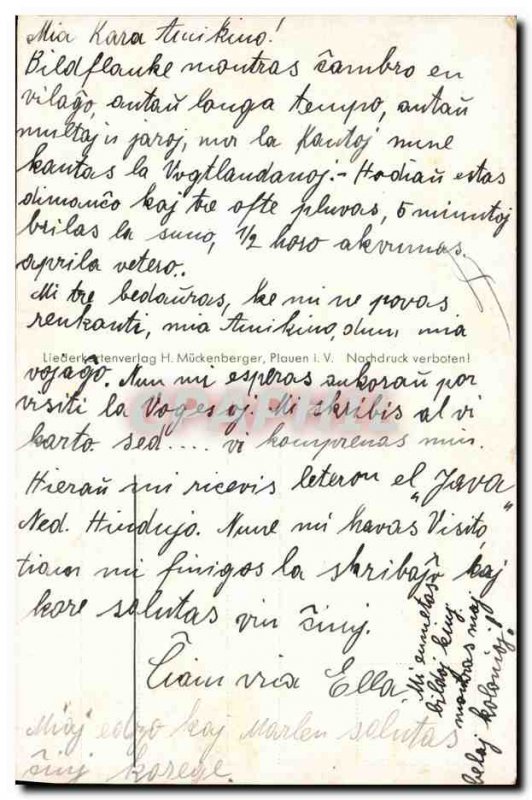 Mia Kara Amikino!
Bildflanke montras ĉambro en
vilaĝo, antaŭ longa tempo, antaŭ
multaj jaroj, nur la Kantoj nune
kantas la Vogtlandanoj.- Hodiaŭ estas
dimanĉo kaj tre ofte pluvas, 5 minutoj
brilas la suno, 1/2 horo akvumas,
aprila vetero.
Mi tre bedaŭras, ke mi ne povas
renkonti, mia Amikino, dum mia
Liederkartenverlag H. Mückenberger, Plauen i. V. Nachdruck verboten!
vojaĝo. Nun mi esperas ankoraŭ por
visiti la Vogesoj. Mi skribis al vi
karto sed.... vi komprenas min.
Hieraŭ mi ricevis leteron el "Java"
Ned. Hindujo. Nune mi havas Visito
tiam mi finigos la skribaĵo kaj
kore salutas vin ĉiuj.
Ĉiam via Ella.
Mi enmetas
bildoj kiuj
montras niaj
belaj kolonioj!
Miaj edzo kaj Marlen salutas
ĉiuj korege.